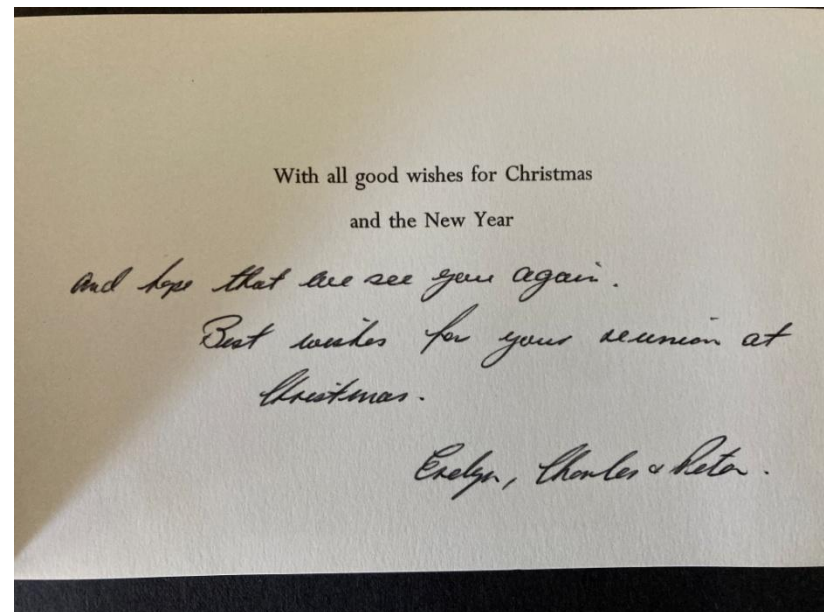 With all good wishes for Christmas
and the New Year
and hope that we see you again.
Best wishes for your reunion at
Christmas.
Evelyn, Charles & Peter.